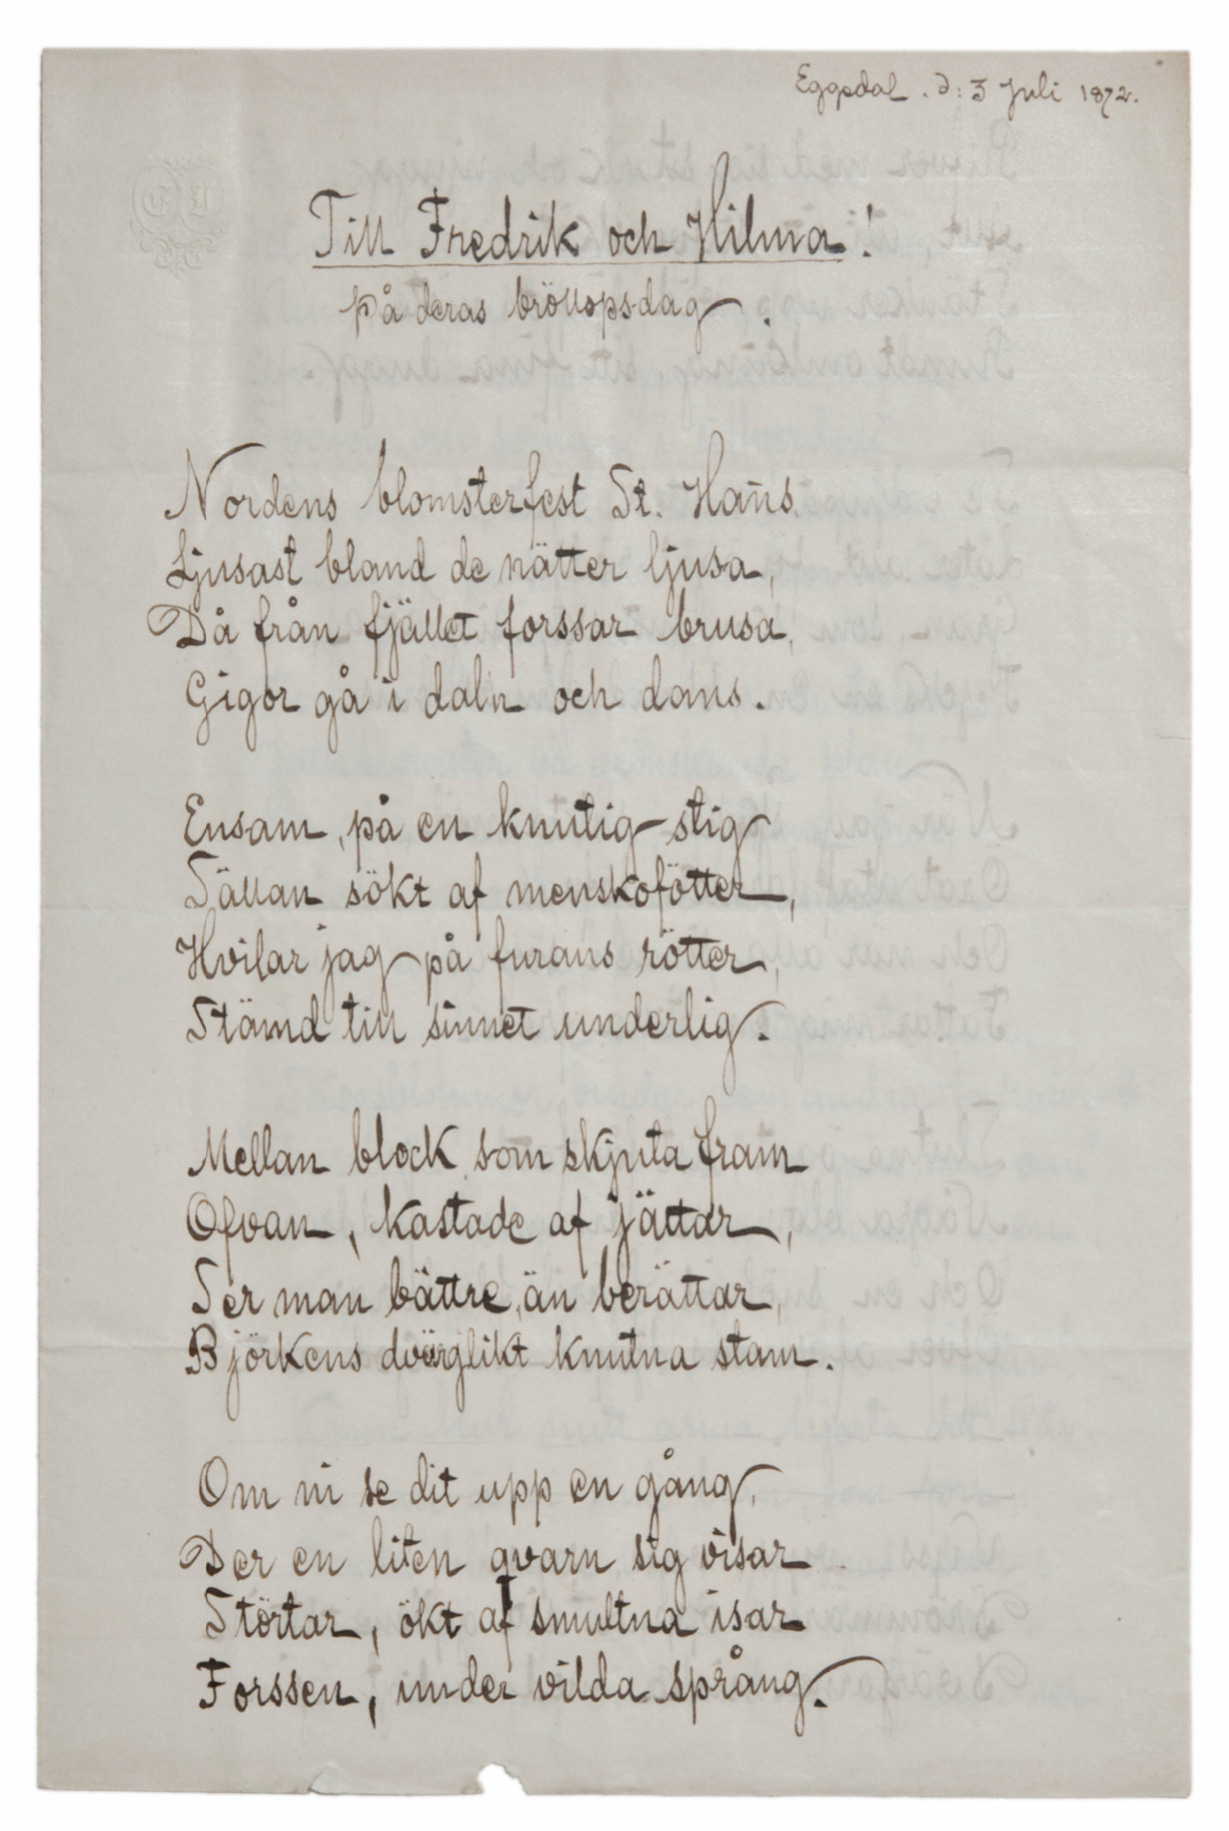 Eggedal . d: 3 Juli 1872.
Till Fredrik och Hilma !
på deras bröllopsdag .
Nordens blomsterfest St. Hans.
Ljusast bland de nätter ljusa,
Då från fjället forssar brusa,
Gigor gå i daln och dans .
Ensam, på en knutig stig
Sällan sökt af menskofötter,
Hvilar jag på furans rötter,
Stämd till sinnet underlig .
Mellan block som skjuta fram
Ofvan, kastade af jättar,
Ser man bättre, än berättar,
Björkens dvärglikt knutna stam .
Om ni se dit upp en gång,
Der en liten qvarn sig visar
Störtar, ökt af smultna isar
Forssen, under vilda språng .